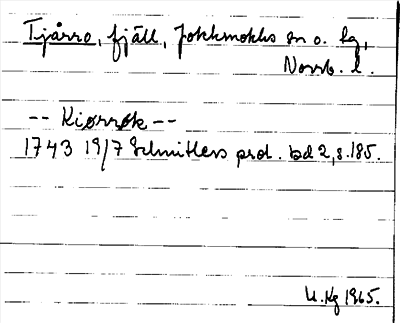 Tjårro, fjäll, Jokkmokks sn o. lg,
Norrb. l.
-- Kiørrøk --
1743 19/7 Schnitlers prot. bd 2, s. 185.
U. Kg 1965.